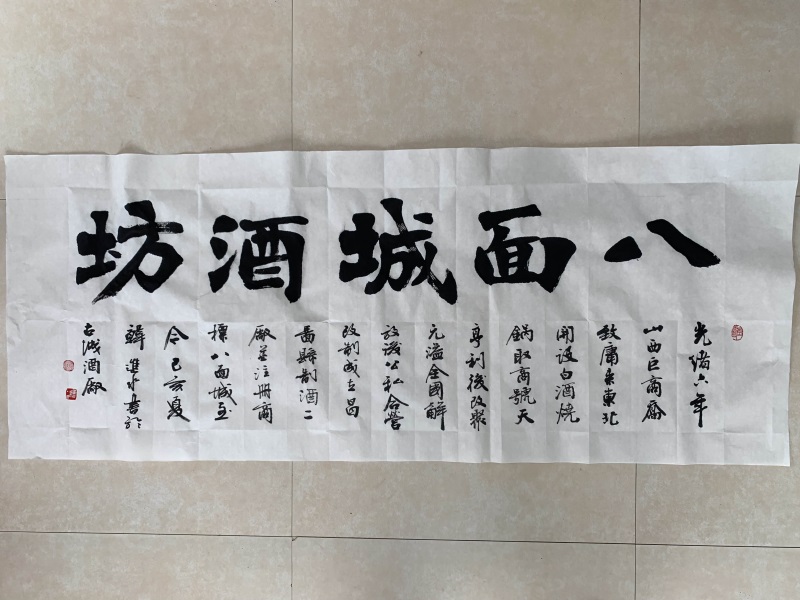 八面城酒坊
光緒六年
山西巨商喬
致庸来東北
開设白酒燒
鍋取商號天
亨利後改聚
元溢全國解
放後公私合營
改制成立昌
啚縣制酒二
廠並注册商
標八面城至
今己亥夏
韓進水書於
古城酒廠